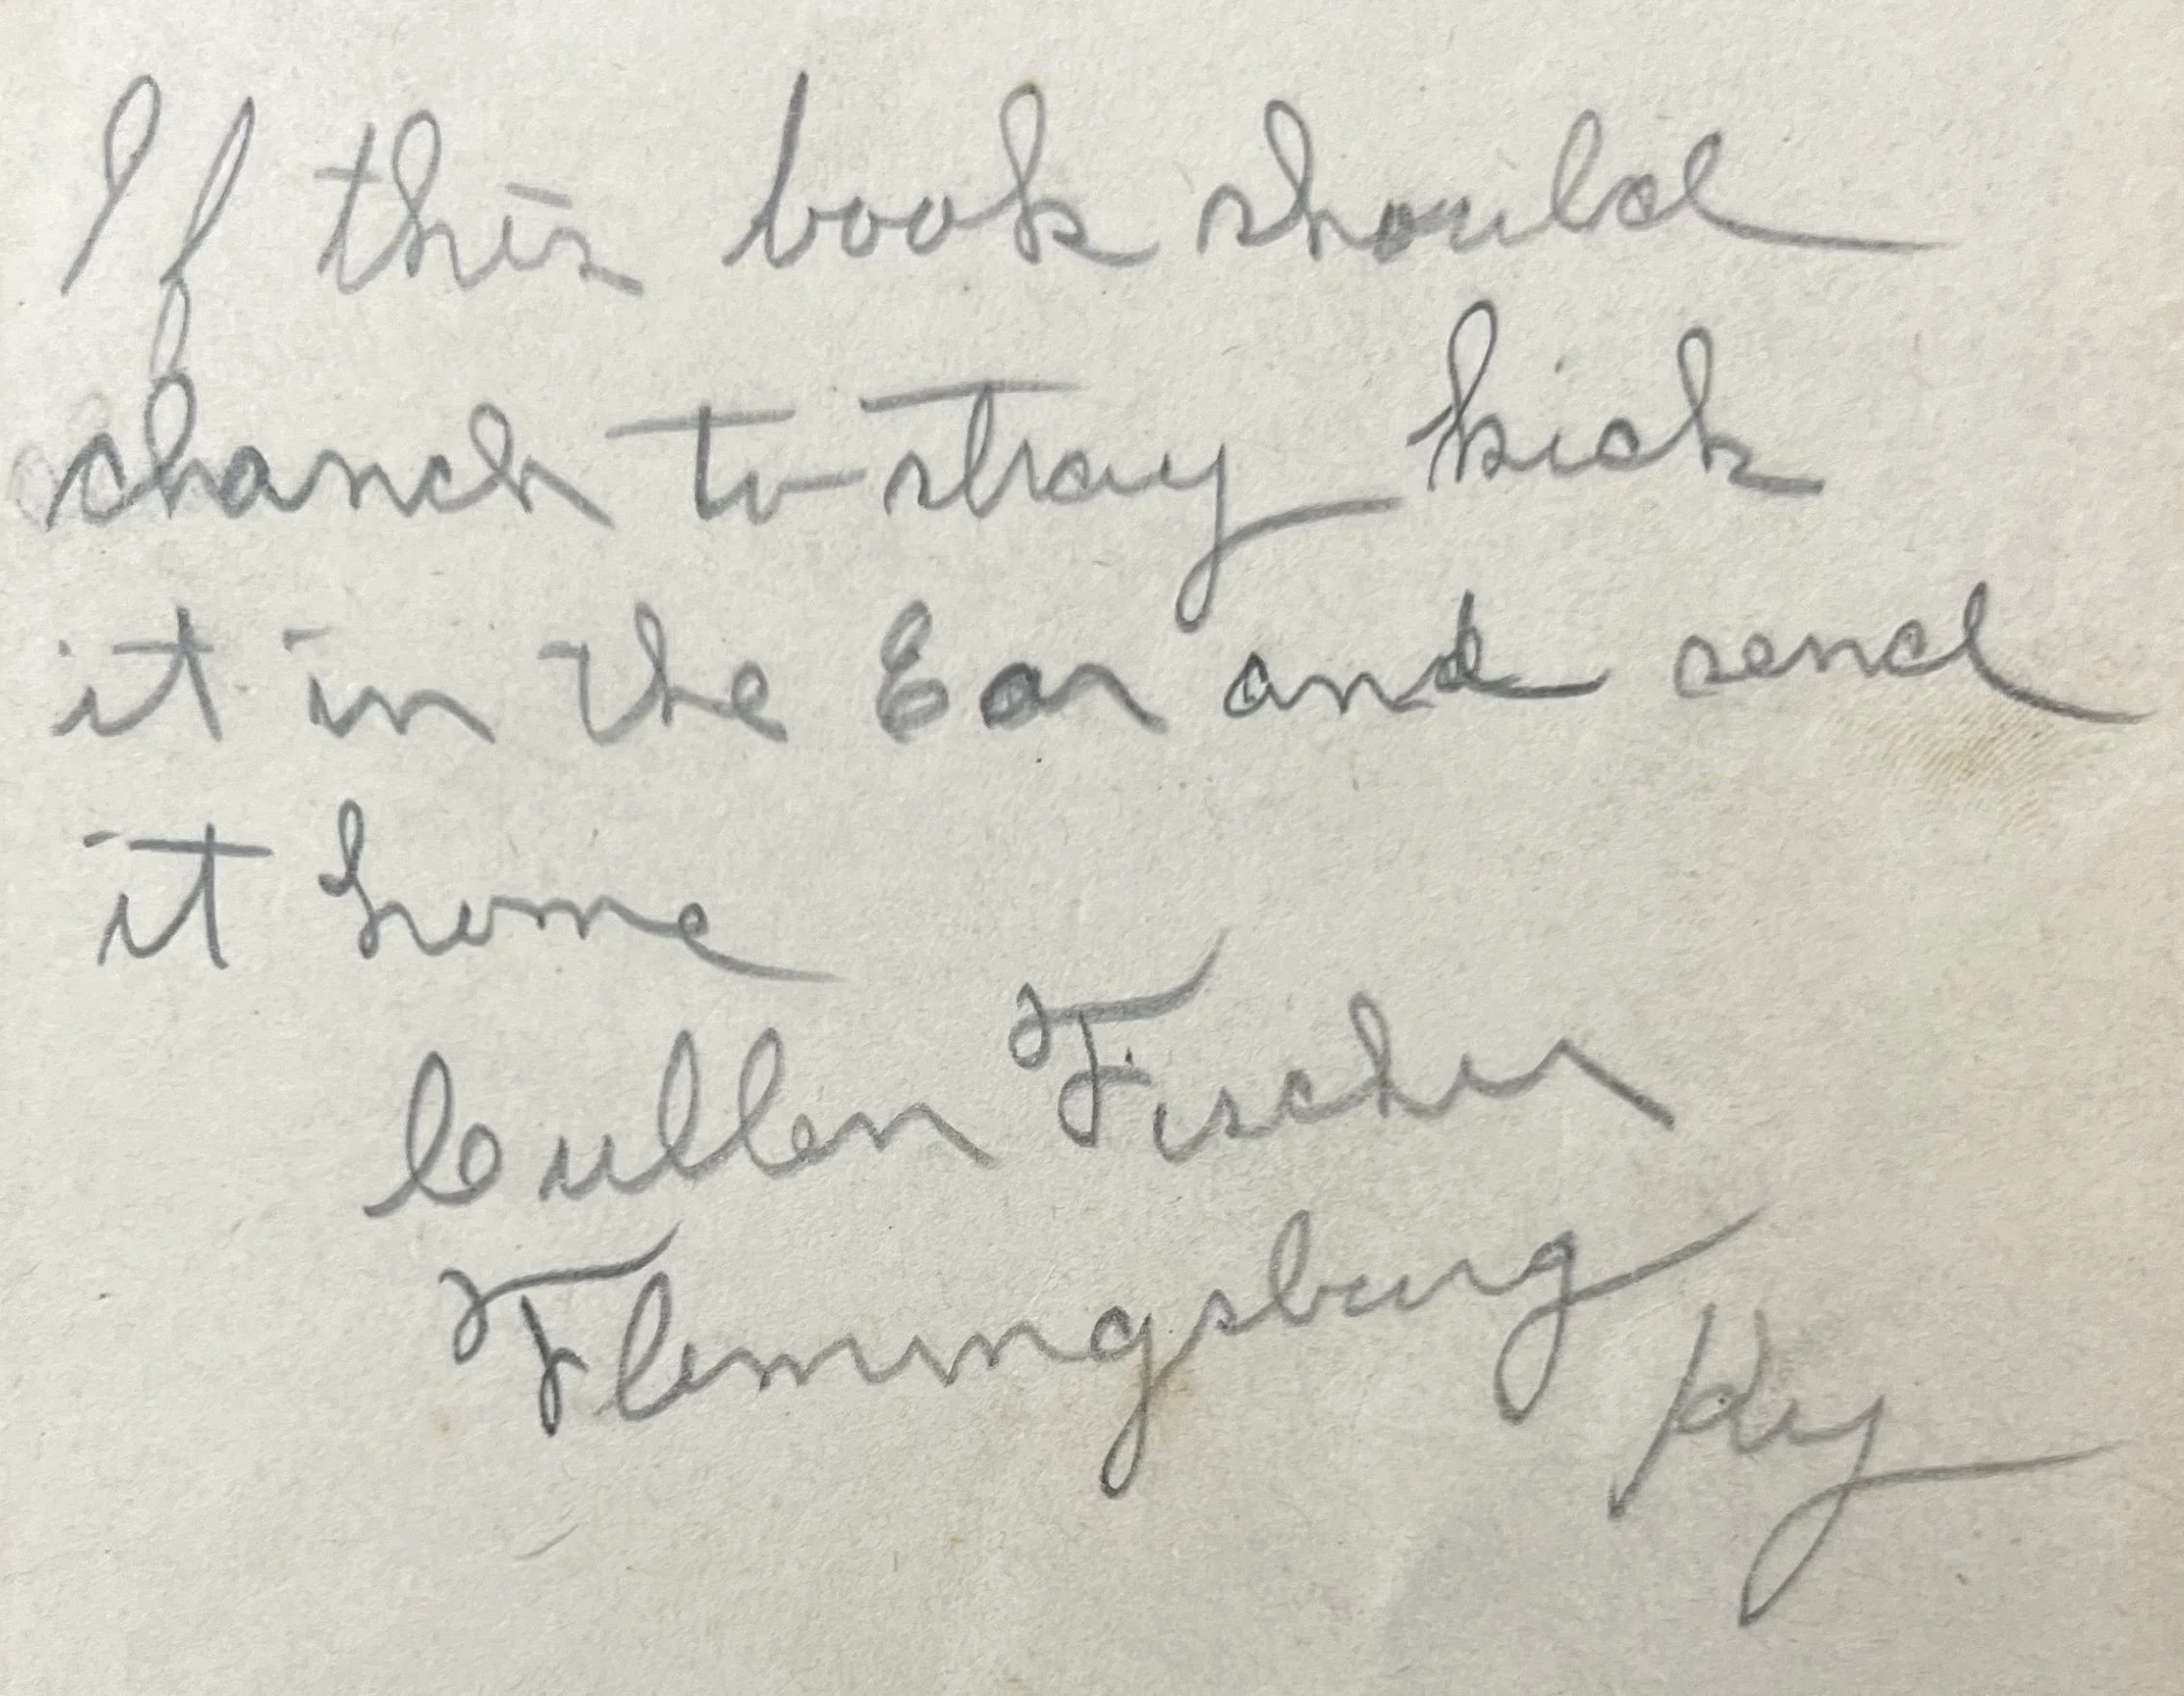 If this book should
chanch to stray kick
it in the Ear and send
it home
Cullen Fischer
Flemingsburg
Ky